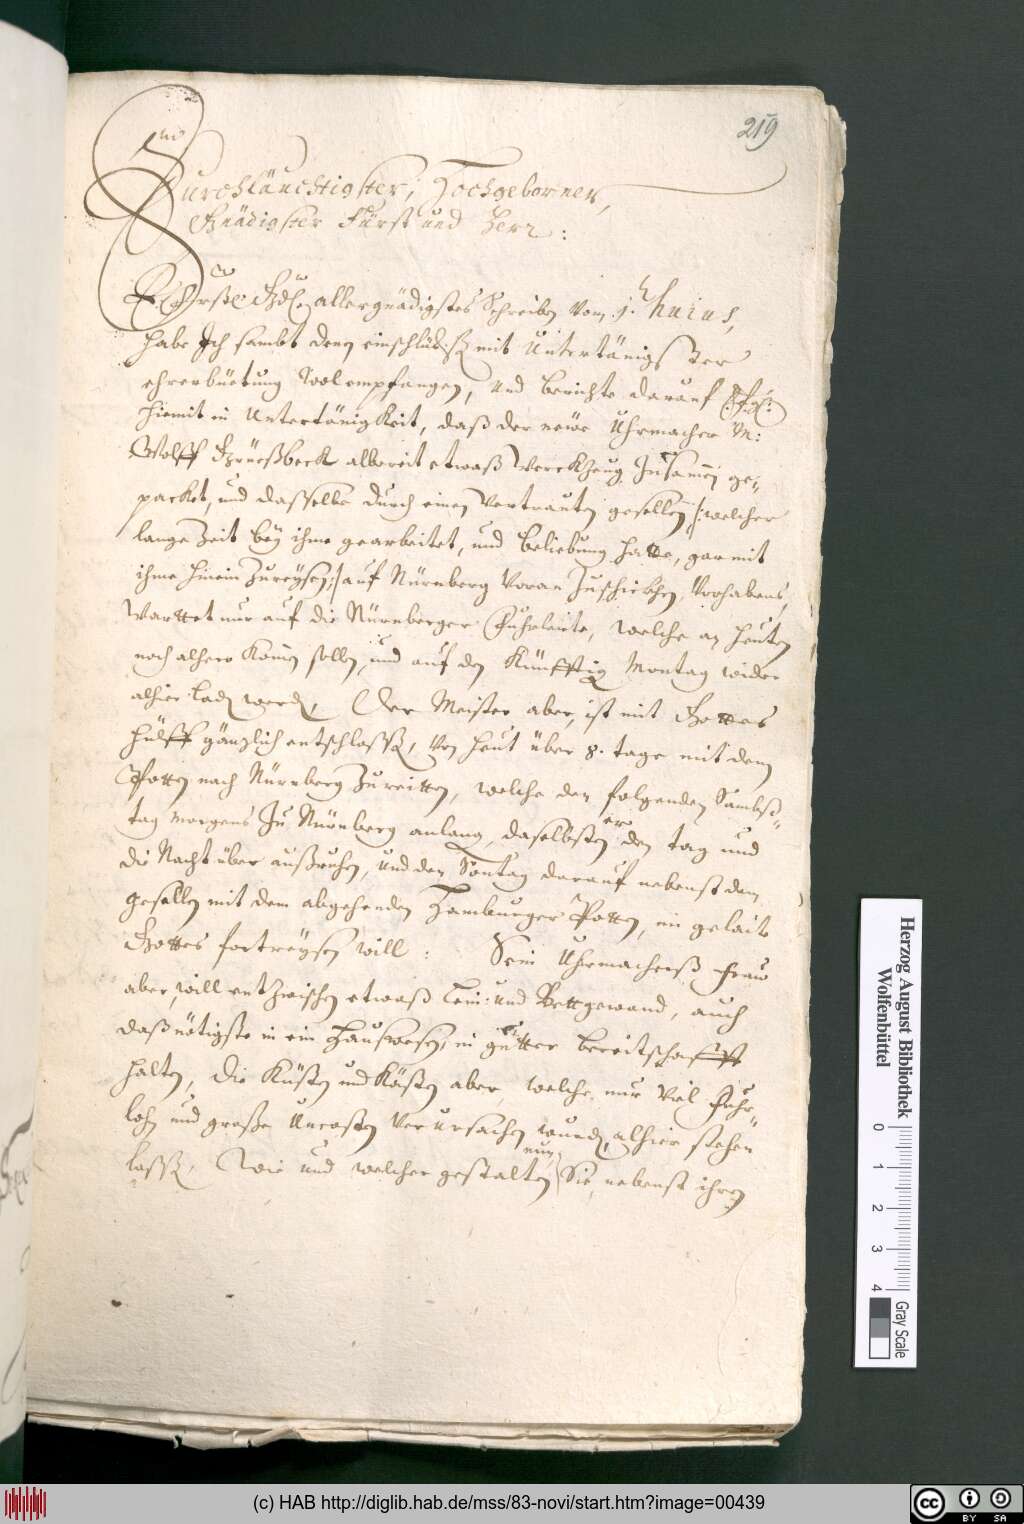 219
Durchläuchtigster, Hochgeborner,
Gnädigster Fürst und Herr:
E. Frstl. Gdl. allergnädigstes Schreiben vom 1. huius,
habe Ich sambt dem einschluß mit Untertänigster
ehrerbüetung wol empfangen, und berichte darauf
hiemit in Untertänigkeit, daß der newe Uhrmacher M:
Wolff allbereit etwaß Werckzeug Zusamen ge-
packet, und dasselbe durch einen vertrauten gesellen /: welcher
lange zeit bey ihme gearbeitet, und beliebung hatte, gar mit
ihme hinein zureysen :/ auf Nürnberg voran zuschickhen vorhabens,
Warttet nur auf die Nürnberger Fuhrleute, welche an heuten
noch alhero komen sollen, und auf den künfftig Montag wider
alhier laden werden, Der Meister aber, ist mit Gottes
hülff gänzlich entschlossen, von heut über 8. tage mit dem
Potten nach Nürnberg zureitten, welche den folgenden Sambß-
tag Morgens zu Nürnberg anlang, daselbsten er den tag und
die Nacht über außruhen, und den Sontag darauf nebenst dem
gesellen mit dem abgehenden Hamburger Potten, im geleite
Gottes fortreysen will: Sein Uhrmacherß frau
aber, will entzwischen etwaß Lein- und Bettgewand, auch
daß nötigste in ein Hauswesen, in guetter bereitschafft
halten, die Küsten und Kästen aber, welche nur viel Fuhr-
lohn und große Uncosten verursachen wurden, alhier stehen
lassen, Wie und welcher gestalten nun Sie, nebenst ihren
Herzog August Bibliothek
Wolfenbüttel
0 1 2 3 4
Gray Scale
(c) HAB http://diglib.hab.de/mss/83-novi/start.htm?image=00439
cc BY SA